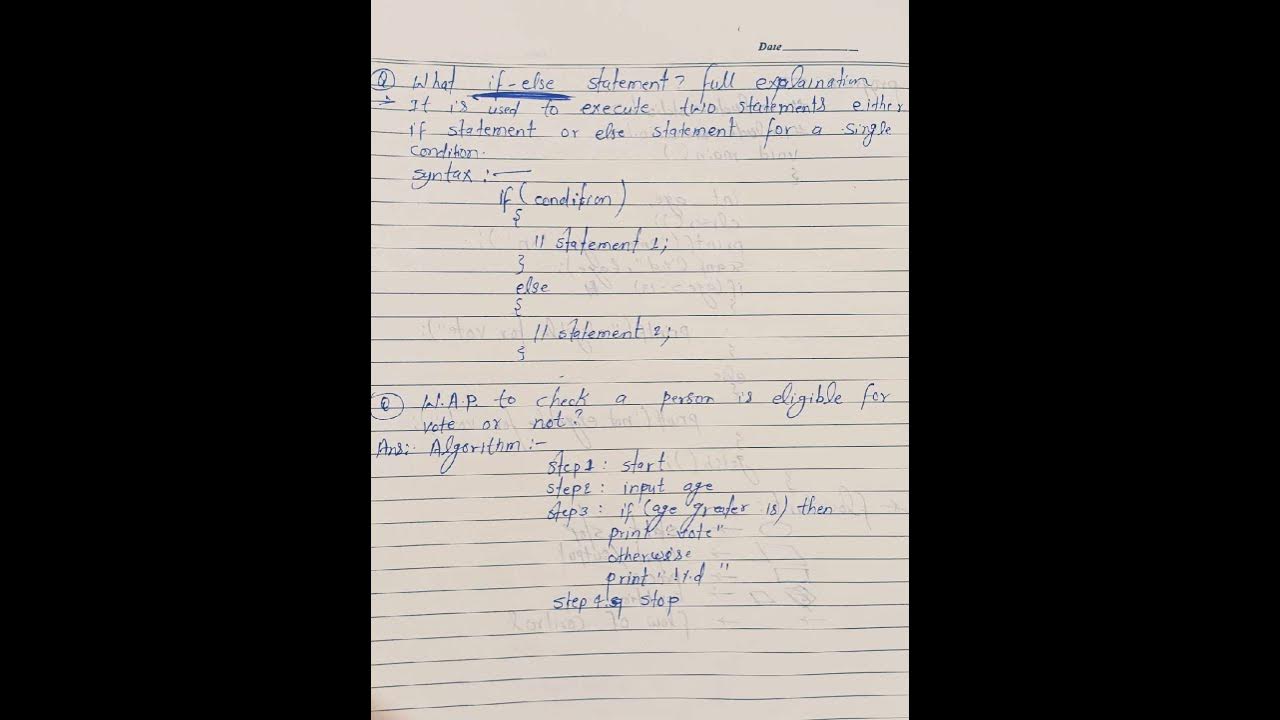 Date
Q What if-else statement? full explaination
→ It is used to execute two statements either
if statement or else statement for a single
condition.
syntax :-
if (condition)
{
// statement 1;
}
else
{
// statement 2;
}
Q W.A.P. to check a person is eligible for
vote or not?
Ans: Algorithm :-
step1 : start
step2 : input age
step3 : if (age greater is) then
print "vote"
otherwise
print "!%d"
step 4. stop